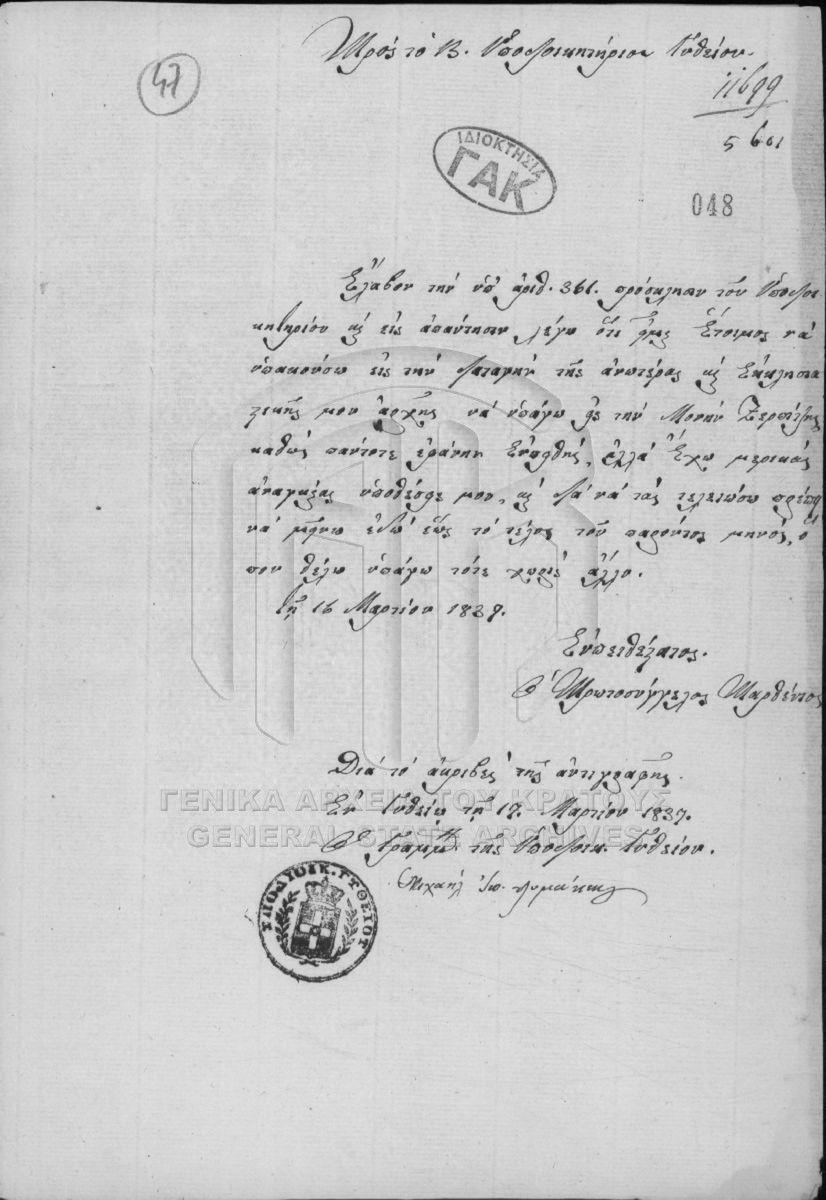 47
Πρός τό Β. Ὑποδιοικητήριον Γυθείου.
11699
5601
ΙΔΙΟΚΤΗΣΙΑ
ΓΑΚ
048
Ἔλαβον τὴν ὑπ' ἀριθ. 361. πρόσκλησιν τοῦ Ὑποδιοι
κητηρίου καὶ εἰς ἀπάντησιν λέγω ὅτι ἤμαι ἕτοιμος νά
ὑπακούσω εἰς τήν διαταγήν τῆς ἀνωτέρας καὶ Ἐκκλησια
ζικῆς μου ἀρχῆς νά ὑπάγω εἰς τήν Μονήν Ζερπίτζης
καθώς πάντοτε ἐφάνην Εὐπειθής, ἀλλά ἔχω μερικάς
ἀναγκαίας ὑποθέσεις μου, καὶ διά νά τάς τελειώσω πρέπει
νά μείνω ἐδῶ ἕως τό τέλος τοῦ παρόντος μηνός, ὁ
που θέλω ὑπάγω τότε χωρίς ἄλλο.
τῇ 16 Μαρτίου 1837.
Εὐπειθέζατος.
Ὁ Πρωτοσύγγελος Παρθένιος
Διά τό ἀκριβές τῆς ἀντιγραφῆς.
Ἐν Γυθείῳ τῇ 17. Μαρτίου 1837.
Ὁ Γραμμ. τῆς Ὑποδιοικ. Γυθείου.
Μιχαήλ
ΥΠΟΔΙΟΙΚ. ΓΥΘΕΙΟΥ
ΓΕΝΙΚΑ ΑΡΧΕΙΑ ΤΟΥ ΚΡΑΤΟΥΣ
GENERAL STATE ARCHIVES